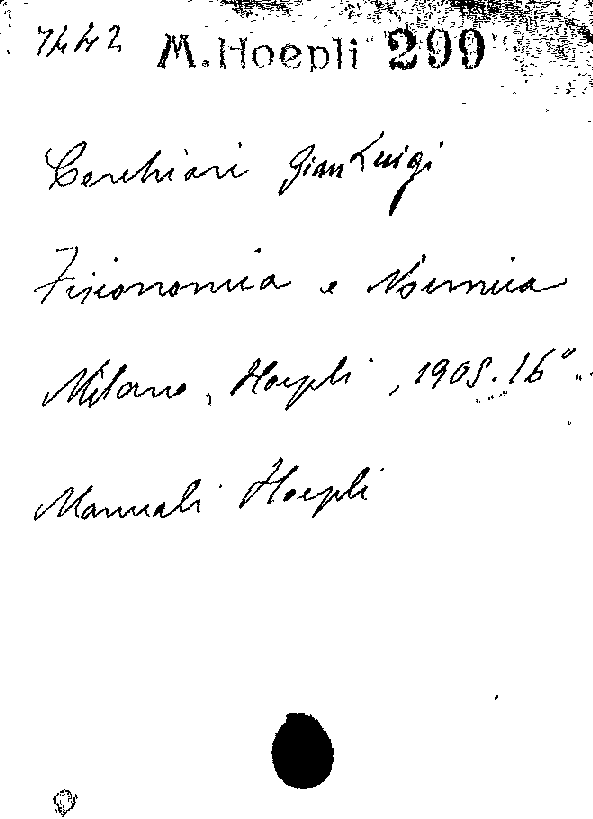 7442 M. Hoepli 299
Cerchiari GianLuigi
Fisionomia e Mimica
Milano, Hoepli, 1905. 16°.
Manuali Hoepli